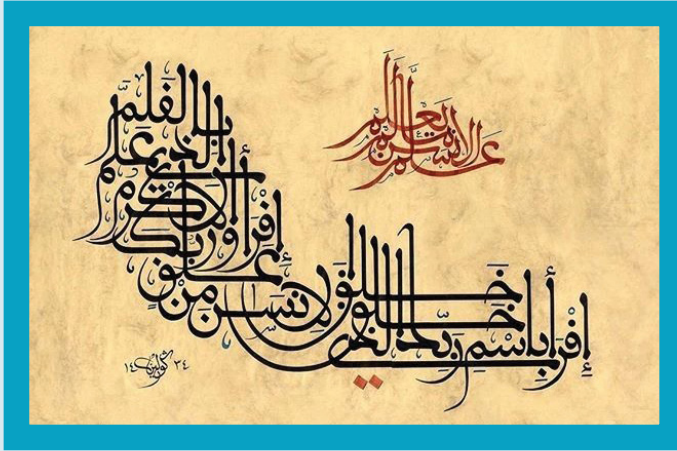 إقرأ باسم ربك الذي خلق
خلق الإنسن من علق
إقرأ وربك الأكرم
الذي علم بالقلم
علم الإنسن ما لم يعلم
١٤ ٣٤